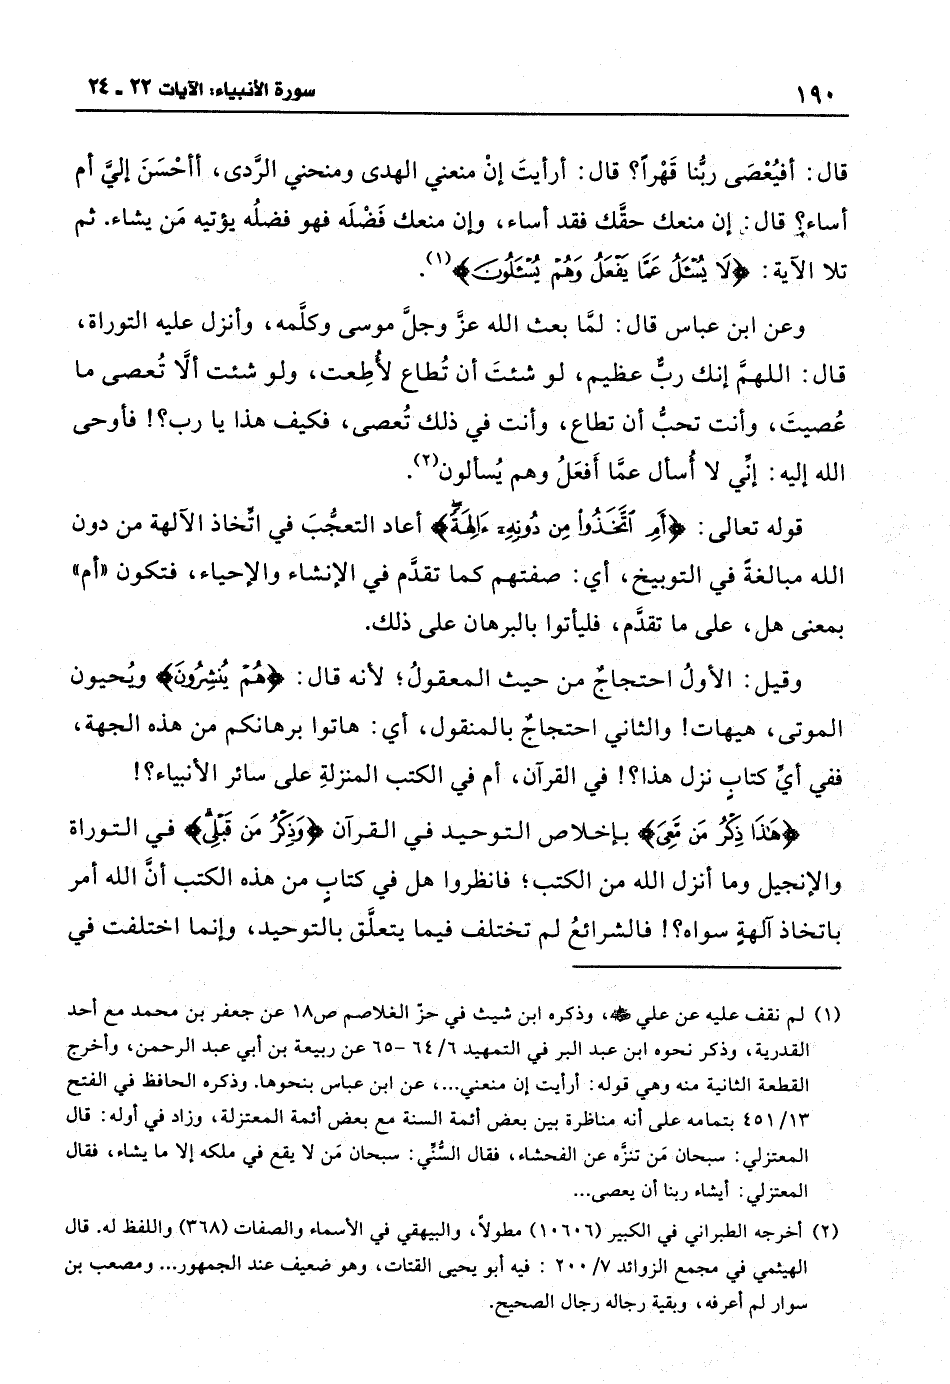 ١٩٠
سورة الأنبياء: الآيات ٢٢ ـ ٢٤
قال: أفيُعْصَى ربُّنا قَهْراً؟ قال: أرأيتَ إنْ منعني الهدى ومنحني الرَّدى، أأحْسَنَ إليَّ أم
أساء؟ قال: إن منعك حقَّك فقد أساء، وإن منعك فَضْلَه فهو فضلُه يؤتيه مَن يشاء. ثم
تلا الآية: ﴿لَا يُسْـَٔلُ عَمَّا يَفْعَلُ وَهُمْ يُسْـَٔلُونَ﴾(١).
وعن ابن عباس قال: لمَّا بعث الله عزَّ وجلَّ موسى وكلَّمه، وأنزل عليه التوراة،
قال: اللهمَّ إنك ربٌّ عظيم، لو شئتَ أن تُطاع لأُطِعت، ولو شئت ألَّا تُعصى ما
عُصيتَ، وأنت تحبُّ أن تطاع، وأنت في ذلك تُعصى، فكيف هذا يا رب؟! فأوحى
الله إليه: إنِّي لا أُسأل عمَّا أَفعَلُ وهم يُسألون(٢).
قوله تعالى: ﴿أَمِ ٱتَّخَذُوا۟ مِن دُونِهِۦٓ ءَالِهَةً﴾ أعاد التعجُّبَ في اتِّخاذ الآلهة من دون
الله مبالغةً في التوبيخ، أي: صفتهم كما تقدَّم في الإنشاء والإحياء، فتكون «أم»
بمعنى هل، على ما تقدَّم، فليأتوا بالبرهان على ذلك.
وقيل: الأولُ احتجاجٌ من حيث المعقولُ؛ لأنه قال: ﴿هُمْ يُنشِرُونَ﴾ ويُحيون
الموتى، هيهات! والثاني احتجاجٌ بالمنقول، أي: هاتوا برهانكم من هذه الجهة،
ففي أيِّ كتابٍ نزل هذا؟! في القرآن، أم في الكتب المنزلةِ على سائر الأنبياء؟!
﴿هَٰذَا ذِكْرُ مَن مَّعِىَ﴾ بإخلاص التوحيد في القرآن ﴿وَذِكْرُ مَن قَبْلِى﴾ في التوراة
والإنجيل وما أنزل الله من الكتب؛ فانظروا هل في كتابٍ من هذه الكتب أنَّ الله أمر
باتخاذ آلهةٍ سواه؟! فالشرائعُ لم تختلف فيما يتعلَّق بالتوحيد، وإنما اختلفت في
(١) لم نقف عليه عن علي ﷺ، وذكره ابن شيث في حزّ الغلاصم ص١٨ عن جعفر بن محمد مع أحد
القدرية، وذكر نحوه ابن عبد البر في التمهيد ٦/ ٦٤ -٦٥ عن ربيعة بن أبي عبد الرحمن، وأخرج
القطعة الثانية منه وهي قوله: أرأيت إن منعني...، عن ابن عباس بنحوها. وذكره الحافظ في الفتح
١٣/ ٤٥١ بتمامه على أنه مناظرة بين بعض أئمة السنة مع بعض أئمة المعتزلة، وزاد في أوله: قال
المعتزلي: سبحان مَن تنزَّه عن الفحشاء، فقال السُّنِّي: سبحان مَن لا يقع في ملكه إلا ما يشاء، فقال
المعتزلي: أيشاء ربنا أن يعصى...
(٢) أخرجه الطبراني في الكبير (١٠٦٠٦) مطولاً، والبيهقي في الأسماء والصفات (٣٦٨) واللفظ له. قال
الهيثمي في مجمع الزوائد ٧/ ٢٠٠ : فيه أبو يحيى القتات، وهو ضعيف عند الجمهور... ومصعب بن
سوار لم أعرفه، وبقية رجاله رجال الصحيح.